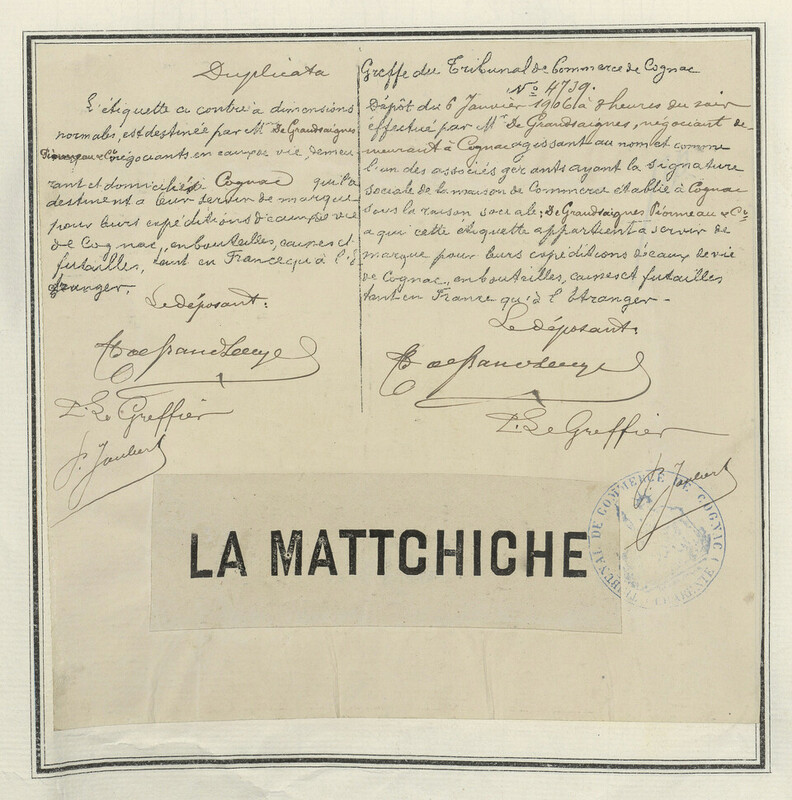 Duplicata
L'étiquette ci contre a dimensions
normales, est destinée par Mr De Grandsaignes
Pionneau & Cie négociants en eaux de vie, demeu
rant et domiciliés à Cognac qu'ils
destinent a leur servir de marque
pour leurs expéditions d'eaux de vie
de Cognac, en bouteilles, caisses et
futailles, tant en France qu'à l'é
tranger.
Le déposant:
P. Le Greffier
P. Joubert
Greffe du Tribunal de Commerce de Cognac
No 4739.
Dépôt du 6 Janvier 1906 à heures du soir
effectué par Mr De Grandsaignes, négociant de-
meurant à Cognac agissant au nom et comme
l'un des associés gérants ayant la signature
sociale de la maison de Commerce établie à Cognac
sous la raison sociale: De Grandsaignes Pionneau & Cie
a qui cette étiquette appartient a servir de
marque pour leurs expéditions d'eaux de vie
de Cognac, en bouteilles, caisses et futailles
tant en France qu'à l'Etranger -
Le déposant:
P. Le Greffier
P. Joubert
TRIBUNAL DE COMMERCE DE COGNAC (CHARENTE)
LA MATTCHICHE